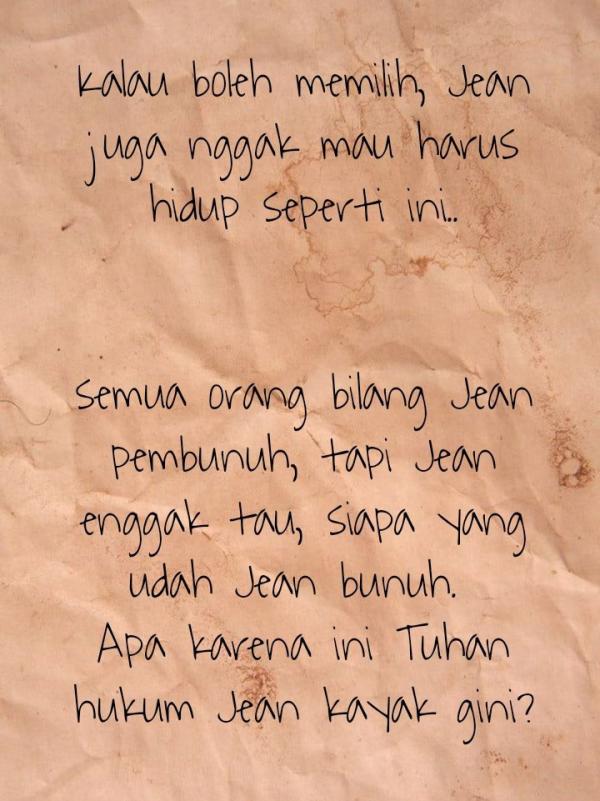 kalau boleh memilih, Jean
juga nggak mau harus
hidup seperti ini..
semua orang bilang Jean
pembunuh, tapi Jean
enggak tau, siapa yang
udah Jean bunuh.
Apa karena ini Tuhan
hukum Jean kayak gini?